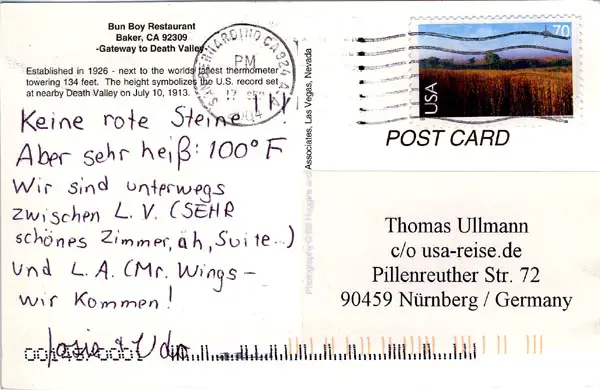 Bun Boy Restaurant
Baker, CA 92309
-Gateway to Death Valley-
Established in 1926 - next to the worlds tallest thermometer
towering 134 feet. The height symbolizes the U.S. record set
at nearby Death Valley on July 10, 1913.
Keine rote Steine!!!
Aber sehr heiß: 100°F
Wir sind unterwegs
zwischen L.V. (SEHR
schönes Zimmer, äh, Suite...)
und L.A. (Mr. Wings-
wir kommen!
& Udo
SAN BERNARDINO CA 924
PM
17 SEP
2004
Associates, Las Vegas, Nevada
Photography © Bill Huggins and
70
USA
POST CARD
Thomas Ullmann
c/o usa-reise.de
Pillenreuther Str. 72
90459 Nürnberg / Germany